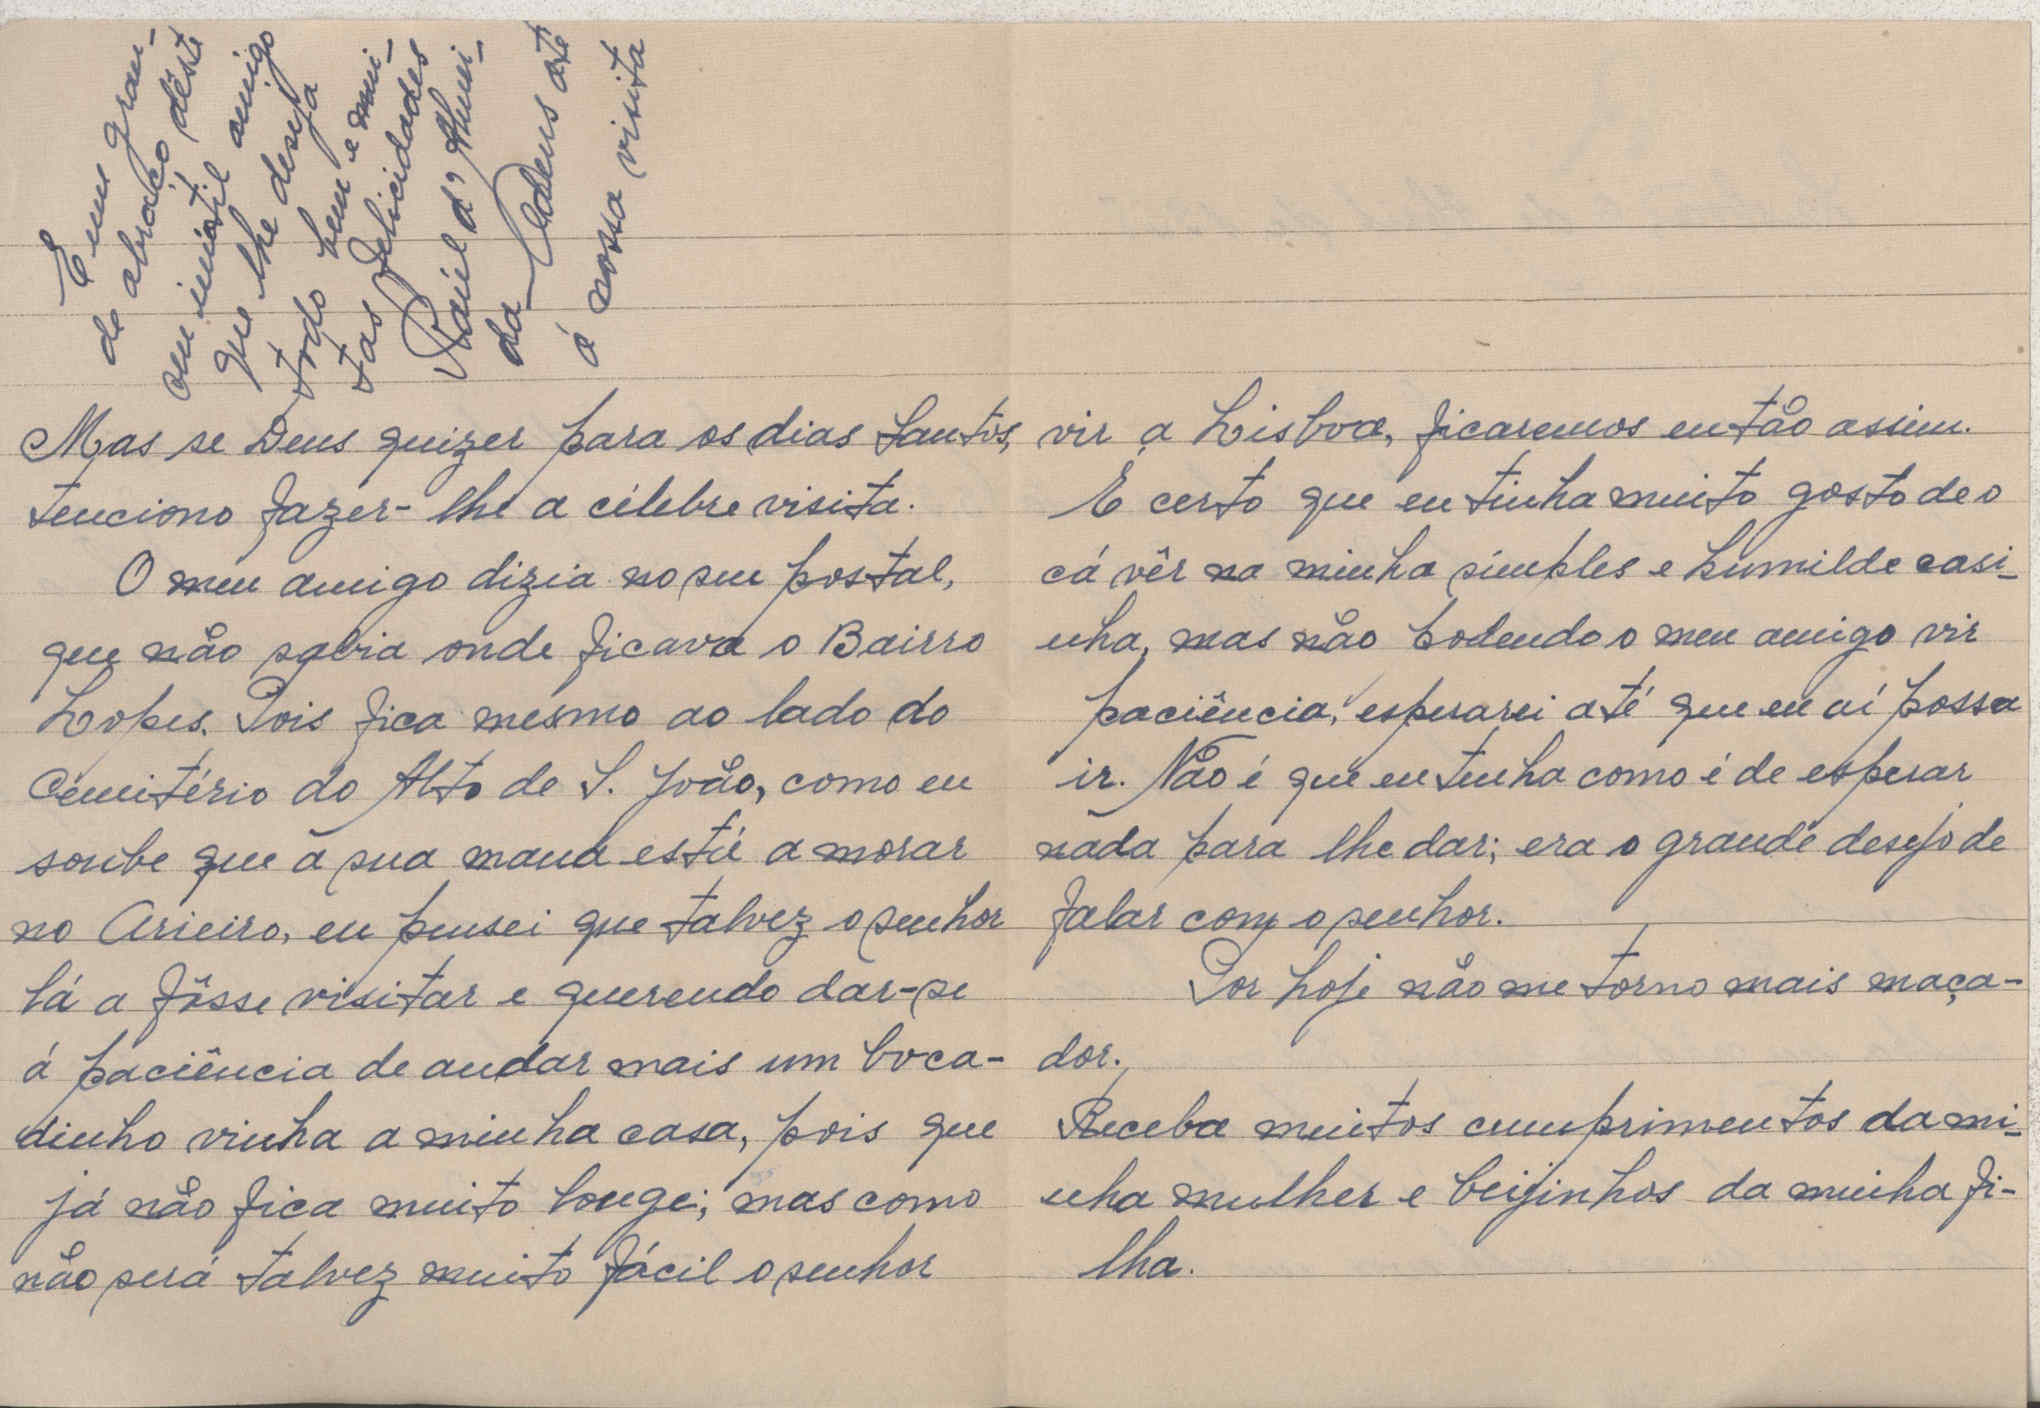 Mas se Deus quizer para os dias Santos,
tenciono fazer-lhe a célebre visita.
O meu amigo dizia no seu postal,
que não sabia onde ficava o Bairro
Lopes. Pois fica mesmo ao lado do
Cemitério do Alto de S. João, como eu
soube que a sua mana está a morar
no Arieiro, eu pensei que talvez o senhor
lá a fôsse visitar e querendo dar-se
á paciência de andar mais um boca-
dinho vinha a minha casa, pois que
já não fica muito longe; mas como
não será talvez muito fácil o senhor
vir a Lisboa, ficaremos então assim.
E certo que eu tinha muito gosto de o
cá vêr na minha simples e humilde casi-
nha, mas não podendo o meu amigo vir
paciência, esperarei até que eu aí possa
ir. Não é que eu tenha como é de esperar
nada para lhe dar; era o grande desejo de
falar com o senhor.
Por hoje não me torno mais maça-
dor.
Receba muitos cumprimentos da mi-
nha mulher e beijinhos da minha fi-
lha.
E um gran-
de abraço dêste
seu inútil amigo
que lhe deseja
tudo bem e mui-
tas felicidades
Raúl d'Almei-
da Adeus até
á nossa visita